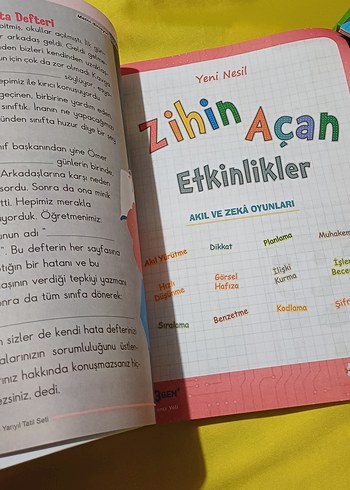 ta Defteri
bitmiş, okullar açılmıştı. İlk gün
arkadaş geldi. Geldi gelmesi
den bizleri kendinden uzaklaş
un için çok da zor olmadı. Kavga
söylüyor, eşya
epimiz ile kırıcı konuşuyordu.
geçinen, birbirine yardım eden
sınıftık. İnanın ne yapacağımızı
ünden sınıfta huzur diye bir şey
nıf başkanından yine Ömer
günlerin birinde,
Arkadaşlarına karşı neden
sordu. Sonra da ona minik
tti. Hepimiz merakla
ıyorduk. Öğretmenimiz:
unun adı "
". Bu defterin her sayfasına
tığın bir hatanı ve bu
aşının verdiği tepkiyi yazmanı
onra da tüm sınıfa dönerek:
n sizler de kendi hata defterinizi
alarınızın sorumluluğunu üstlen
rınız hakkında konuşmazsanız hiç
ezsiniz, dedi.
Yarıyıl Tatil Seti
Yeni Nesil
Zihin Açan
Etkinlikler
AKIL VE ZEKÂ OYUNLARI
Akıl Yürütme
Dikkat
Planlama
Muhakem
Hızlı
Düşünme
Görsel
Hafıza
İlişki
Kurma
İşle
Bece
Sıralama
Benzetme
Kodlama
Şifr